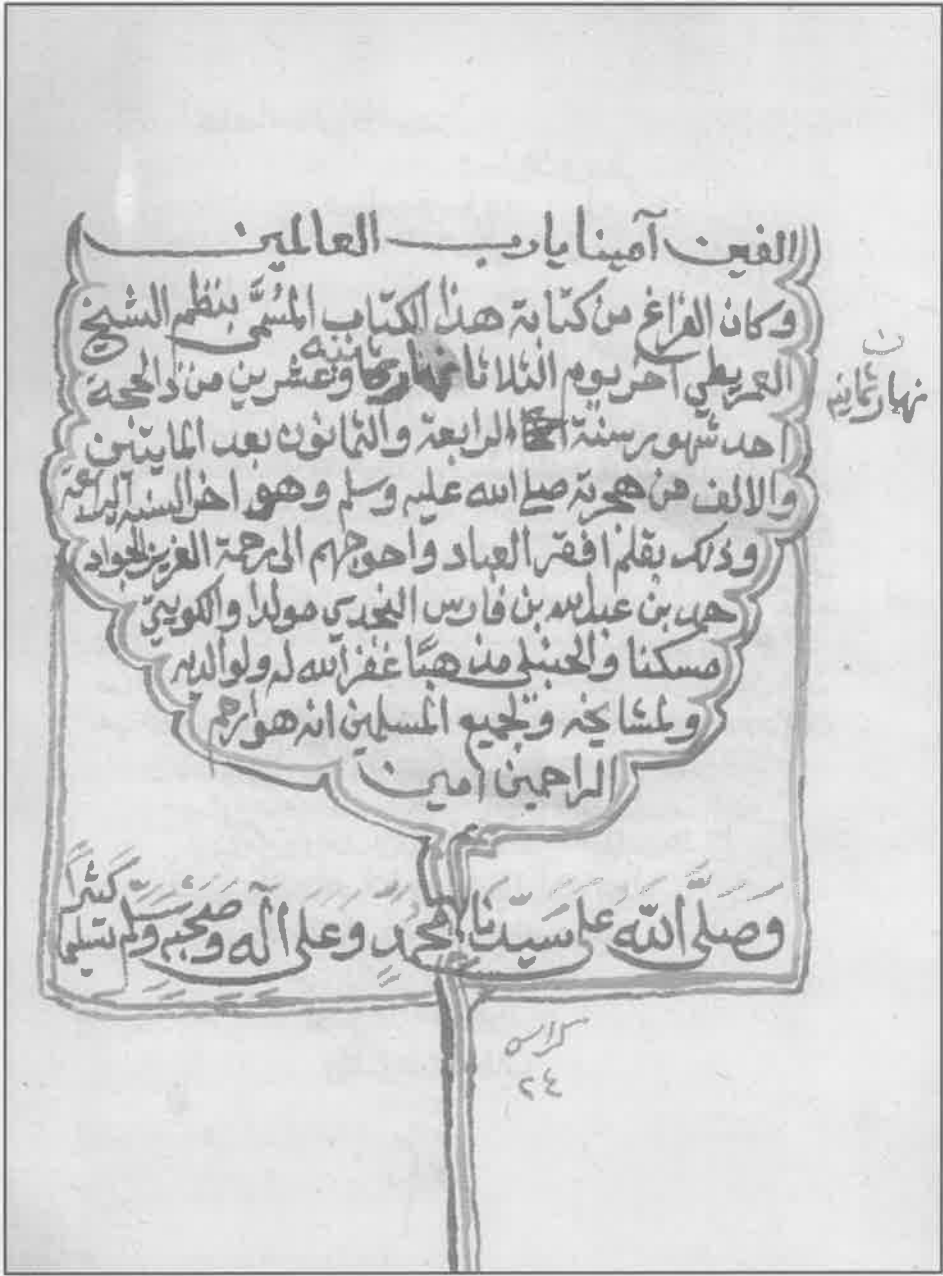 الفين آمينا يا رب العالمين
وكان الفراغ من كتابة هذا الكتاب المُسمَّى بنظم الشيخ
العمريطي آخر يوم الثلاثا نهار ثمانية وعشرين من ذالحجة
احد شهور سنة الرابعة والثمانون بعد المايتين
والالف من هجرته صلى الله عليه وسلم وهو اخر السنة الرابعة
وذلك بقلم افقر العباد واحوجهم الى رحمة العزيز الجواد
حمد بن عبدالله بن فارس النجدي مولدا والكويتي
مسكنا والحنبلي مذهبًا غفر الله له ولوالديه
ولمشايخه ولجميع المسلمين انه هو ارحم
الراحمين آمين
وَصَلَّى اللّه على سَيِّدِنَا محمد وعلى آله وصحبه وسلم تسليما كثيرا
ن
نهار ثمانية
كراس
٢٤